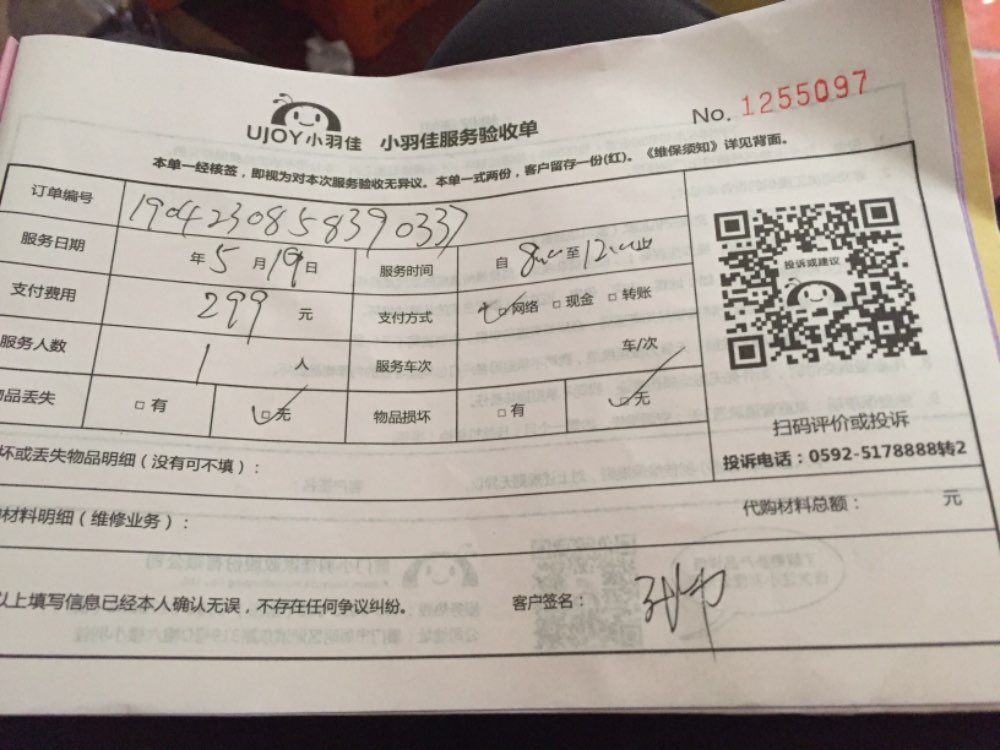 No. 1255097
UJOY小羽佳 小羽佳服务验收单
本单一经核签，即视为对本次服务验收无异议。本单一式两份，客户留存一份(红)。《维保须知》详见背面。
订单编号 1904230858390337
服务日期 年5月19日 服务时间 自8:00至12:00
支付费用 299 元 支付方式 □网络 □现金 □转账
服务人数 1 人 服务车次 车/次
品丢失 □有 □无 物品损坏 □有 □无
投诉或建议
扫码评价或投诉
投诉电话：0592-5178888转2
坏或丢失物品明细（没有可不填）：
材料明细（维修业务）： 代购材料总额： 元
以上填写信息已经本人确认无误，不存在任何争议纠纷。 客户签名：